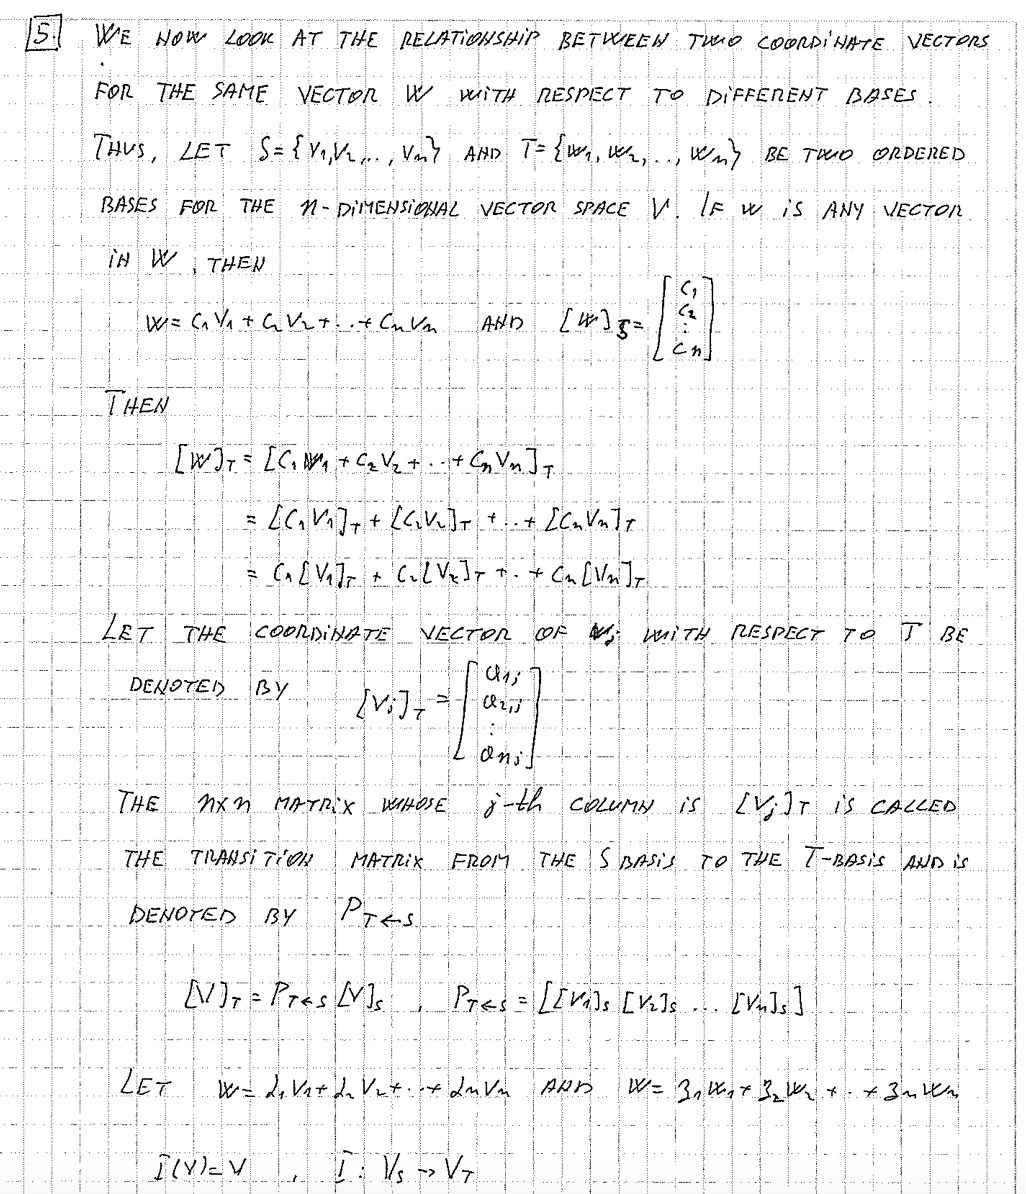 5. WE NOW LOOK AT THE RELATIONSHIP BETWEEN TWO COORDINATE VECTORS
FOR THE SAME VECTOR W WITH RESPECT TO DIFFERENT BASES.
THUS, LET S={V₁,V₂,..., Vₙ} AND T={W₁, W₂, .., Wₙ} BE TWO ORDERED
BASES FOR THE n-DIMENSIONAL VECTOR SPACE V. IF W IS ANY VECTOR
IN W, THEN
W= C₁V₁ + C₂V₂ + .. + CₙVₙ AND [W]_S = [C₁ C₂ ⋮ Cₙ]
THEN
[W]_T = [C₁V₁ + C₂V₂ + .. + CₙVₙ]_T
= [C₁V₁]_T + [C₂V₂]_T + .. + [CₙVₙ]_T
= C₁[V₁]_T + C₂[V₂]_T + .. + Cₙ[Vₙ]_T
LET THE COORDINATE VECTOR OF WITH RESPECT TO T BE
DENOTED BY [Vⱼ]_T = [a₁ⱼ a₂ⱼ ⋮ aₙⱼ]
THE n×n MATRIX WHOSE j-th COLUMN IS [Vⱼ]_T IS CALLED
THE TRANSITION MATRIX FROM THE S BASIS TO THE T-BASIS AND IS
DENOTED BY P_T←S
[V]_T = P_T←S [V]_S , P_T←S = [[V₁]_S [V₂]_S ... [Vₙ]_S]
LET W= α₁V₁ + α₂V₂ + .. + αₙVₙ AND W= β₁W₁ + β₂W₂ + .. + βₙWₙ
I(V)=V , I: V_S → V_T